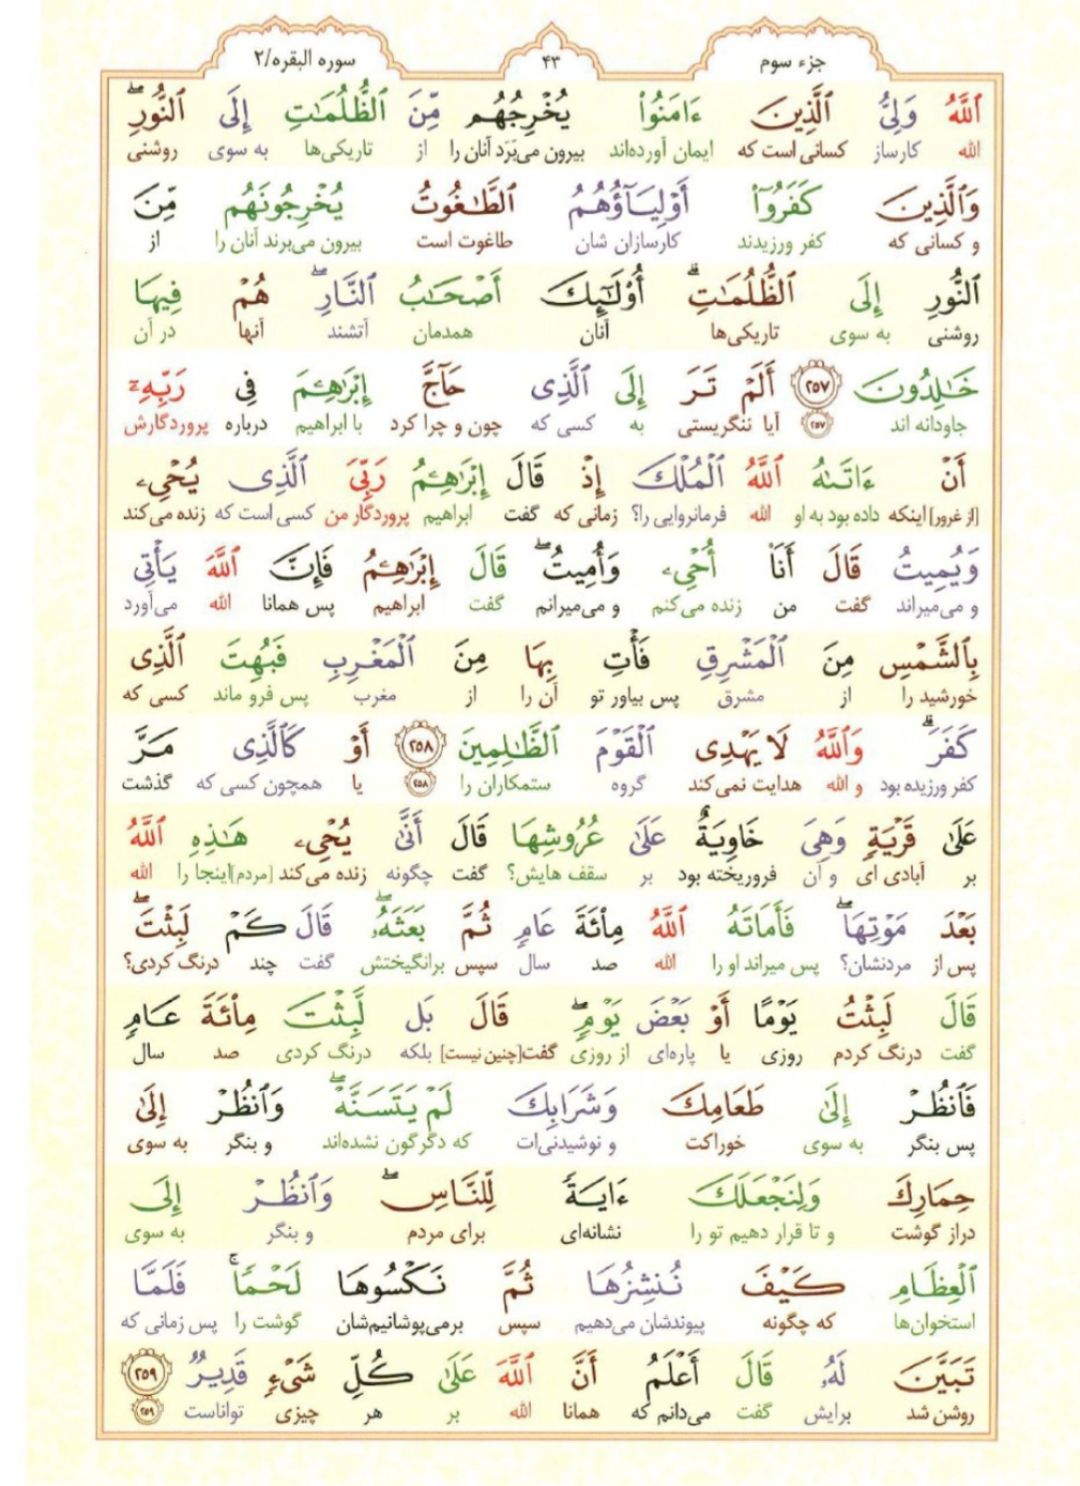 جزء سوم
۴۳
سوره البقره/۲
ٱللَّهُ وَلِيُّ ٱلَّذِينَ ءَامَنُوا۟ يُخْرِجُهُم مِّنَ ٱلظُّلُمَـٰتِ إِلَى ٱلنُّورِ ۖ
الله کارساز کسانی است که ایمان آورده‌اند بیرون می‌بَرَد آنان را از تاریکی‌ها به سوی روشنی
وَٱلَّذِينَ كَفَرُوٓا۟ أَوْلِيَآؤُهُمُ ٱلطَّـٰغُوتُ يُخْرِجُونَهُم مِّنَ
و کسانی که کفر ورزیدند کارسازان شان طاغوت است بیرون می‌برند آنان را از
ٱلنُّورِ إِلَى ٱلظُّلُمَـٰتِ ۗ أُو۟لَـٰٓئِكَ أَصْحَـٰبُ ٱلنَّارِ ۖ هُمْ فِيهَا
روشنی به سوی تاریکی‌ها آنان همدمان آتشند آنها در آن
خَـٰلِدُونَ ٢٥٧ أَلَمْ تَرَ إِلَى ٱلَّذِى حَآجَّ إِبْرَٰهِـۧمَ فِى رَبِّهِۦٓ
جاودانه اند ۲۵۷ آیا ننگریستی به کسی که چون و چرا کرد با ابراهیم درباره پروردگارش
أَنْ ءَاتَىٰهُ ٱللَّهُ ٱلْمُلْكَ إِذْ قَالَ إِبْرَٰهِـۧمُ رَبِّىَ ٱلَّذِى يُحْىِۦ
[از غرور] اینکه داده بود به او الله فرمانروایی را؟ زمانی که گفت ابراهیم پروردگار من کسی است که زنده می‌کند
وَيُمِيتُ قَالَ أَنَا۠ أُحْىِۦ وَأُمِيتُ ۖ قَالَ إِبْرَٰهِـۧمُ فَإِنَّ ٱللَّهَ يَأْتِى
و می‌میراند گفت من زنده می‌کنم و می‌میرانم گفت ابراهیم پس همانا الله می‌آورد
بِٱلشَّمْسِ مِنَ ٱلْمَشْرِقِ فَأْتِ بِهَا مِنَ ٱلْمَغْرِبِ فَبُهِتَ ٱلَّذِى
خورشید را از مشرق پس بیاور تو آن را از مغرب پس فرو ماند کسی که
كَفَرَ ۗ وَٱللَّهُ لَا يَهْدِى ٱلْقَوْمَ ٱلظَّـٰلِمِينَ ٢٥٨ أَوْ كَٱلَّذِى مَرَّ
کفر ورزیده بود و الله هدایت نمی‌کند گروه ستمکاران را ۲۵۸ یا همچون کسی که گذشت
عَلَىٰ قَرْيَةٍ وَهِىَ خَاوِيَةٌ عَلَىٰ عُرُوشِهَا قَالَ أَنَّىٰ يُحْىِۦ هَـٰذِهِ ٱللَّهُ
بر آبادی ای و آن فروریخته بود بر سقف هایش؟ گفت چگونه زنده می‌کند [مردم] اینجا را الله
بَعْدَ مَوْتِهَا ۖ فَأَمَاتَهُ ٱللَّهُ مِا۟ئَةَ عَامٍ ثُمَّ بَعَثَهُۥ ۖ قَالَ كَمْ لَبِثْتَ ۖ
پس از مردنشان؟ پس میراند او را الله صد سال سپس برانگیختش گفت چند درنگ کردی؟
قَالَ لَبِثْتُ يَوْمًا أَوْ بَعْضَ يَوْمٍ ۖ قَالَ بَل لَّبِثْتَ مِا۟ئَةَ عَامٍ
گفت درنگ کردم روزی یا پاره‌ای از روزی گفت [چنین نیست] بلکه درنگ کردی صد سال
فَٱنظُرْ إِلَىٰ طَعَامِكَ وَشَرَابِكَ لَمْ يَتَسَنَّهْ ۖ وَٱنظُرْ إِلَىٰ
پس بنگر به سوی خوراکت و نوشیدنی‌ات که دگرگون نشده‌اند و بنگر به سوی
حِمَارِكَ وَلِنَجْعَلَكَ ءَايَةً لِّلنَّاسِ ۖ وَٱنظُرْ إِلَى
دراز گوشت و تا قرار دهیم تو را نشانه‌ای برای مردم و بنگر به سوی
ٱلْعِظَامِ كَيْفَ نُنشِزُهَا ثُمَّ نَكْسُوهَا لَحْمًا ۚ فَلَمَّا
استخوان‌ها که چگونه پیوندشان می‌دهیم سپس برمی‌پوشانیم‌شان گوشت را پس زمانی که
تَبَيَّنَ لَهُۥ قَالَ أَعْلَمُ أَنَّ ٱللَّهَ عَلَىٰ كُلِّ شَىْءٍ قَدِيرٌ ٢٥٩
روشن شد برایش گفت می‌دانم که همانا الله بر هر چیزی تواناست ۲۵۹